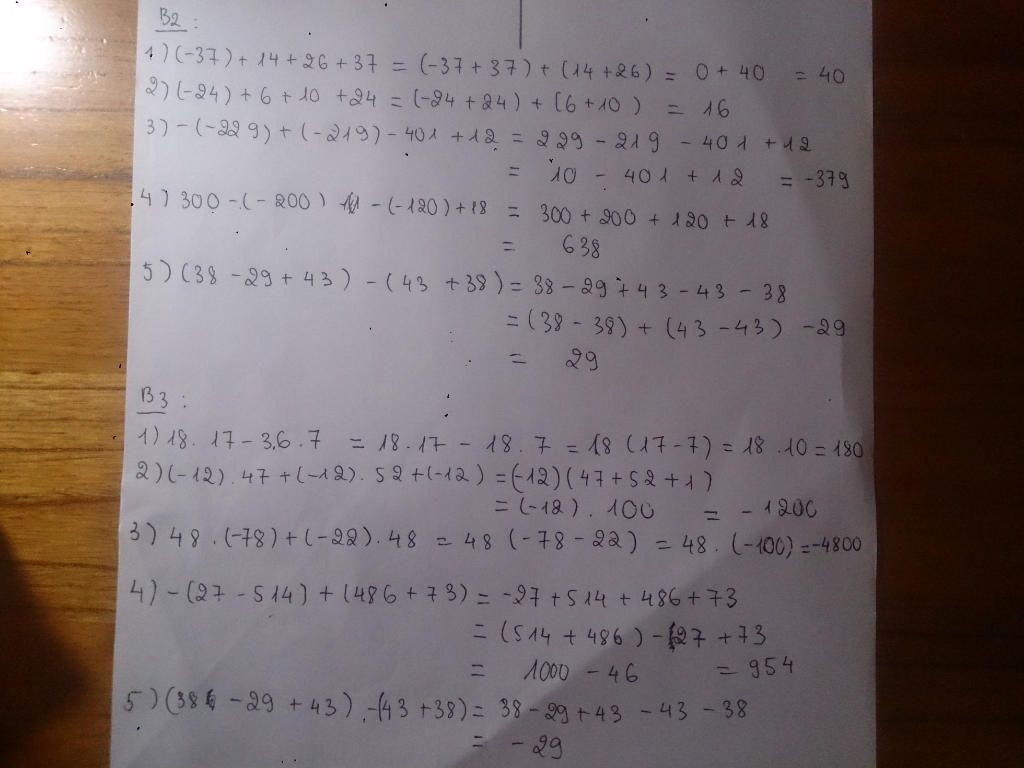 B2 :
1) (-37) + 14 + 26 + 37 = (-37 + 37) + (14 + 26) = 0 + 40 = 40
2) (-24) + 6 + 10 + 24 = (-24 + 24) + (6 + 10) = 16
3) - (-229) + (-219) - 401 + 12 = 229 - 219 - 401 + 12
= 10 - 401 + 12 = -379
4) 300 - (-200) - (-120) + 18 = 300 + 200 + 120 + 18
= 638
5) (38 - 29 + 43) - (43 + 38) = 38 - 29 + 43 - 43 - 38
= (38 - 38) + (43 - 43) - 29
= 29
B3 :
1) 18 . 17 - 3.6 . 7 = 18 . 17 - 18 . 7 = 18 (17 - 7) = 18 . 10 = 180
2) (-12) . 47 + (-12) . 52 + (-12) = (-12) (47 + 52 + 1)
= (-12) . 100 = - 1200
3) 48 . (-78) + (-22) . 48 = 48 (-78 - 22) = 48 . (-100) = -4800
4) - (27 - 514) + (486 + 73) = -27 + 514 + 486 + 73
= (514 + 486) - 27 + 73
= 1000 - 46 = 954
5) (38 - 29 + 43) - (43 + 38) = 38 - 29 + 43 - 43 - 38
= - 29